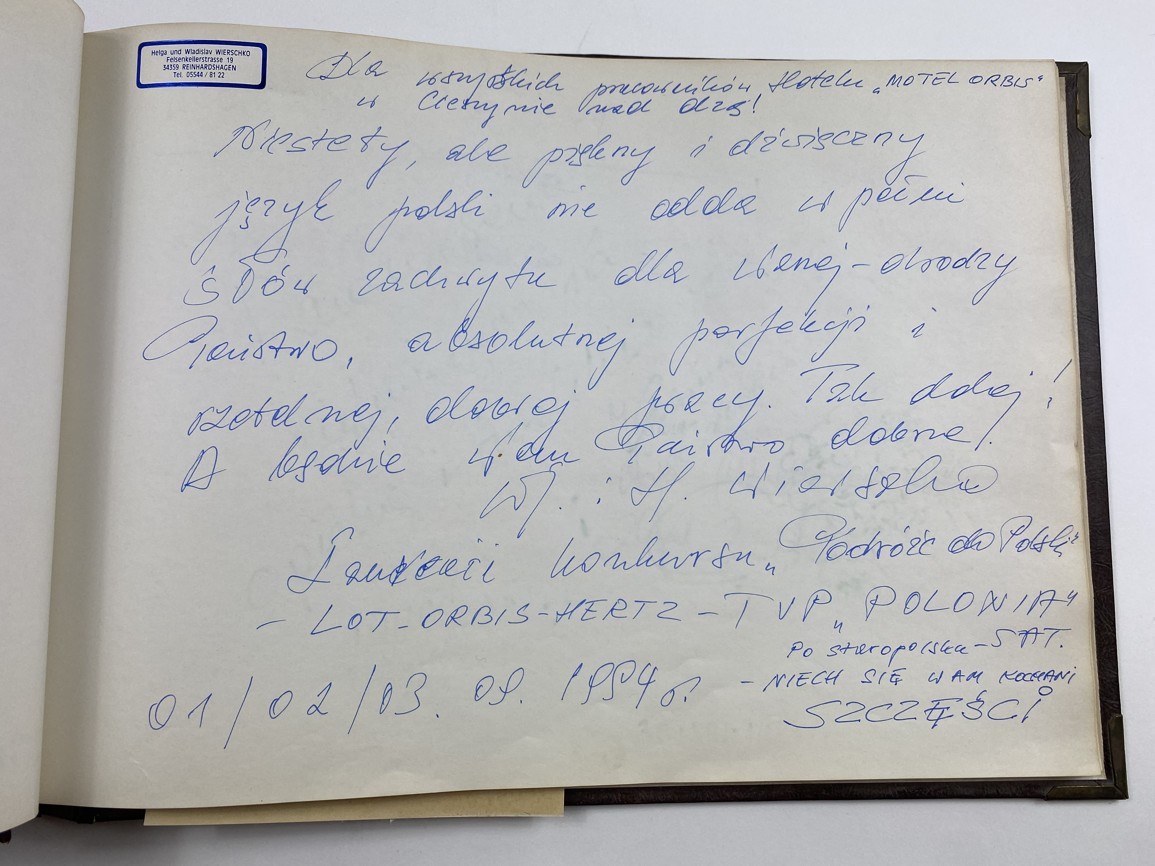 Helga und Wladislav WIERSCHKO
Felsenkellerstrasse 19
34359 REINHARDSHAGEN
Tel. 05544 / 81 22
Dla wszystkich pracowników Hotelu „MOTEL ORBIS"
w Cieszynie nad Olzą!
Niestety, ale piękny i dźwięczny
język polski nie odda w pełni
słów zachwytu dla Waszej - drodzy
Państwo, absolutnej perfekcji i
rzetelnej, dobrej pracy. Tak dalej!
A będzie Wam Państwo dobrze!
Wł. i H. Wierschko
Laureaci konkursu „Podróże do Polski"
- LOT - ORBIS - HERTZ - TVP „POLONIA"
Po staropolsku - SAT.
- NIECH SIĘ WAM KOCHANI
SZCZĘŚCI
01/02/03. 09. 1994 r.